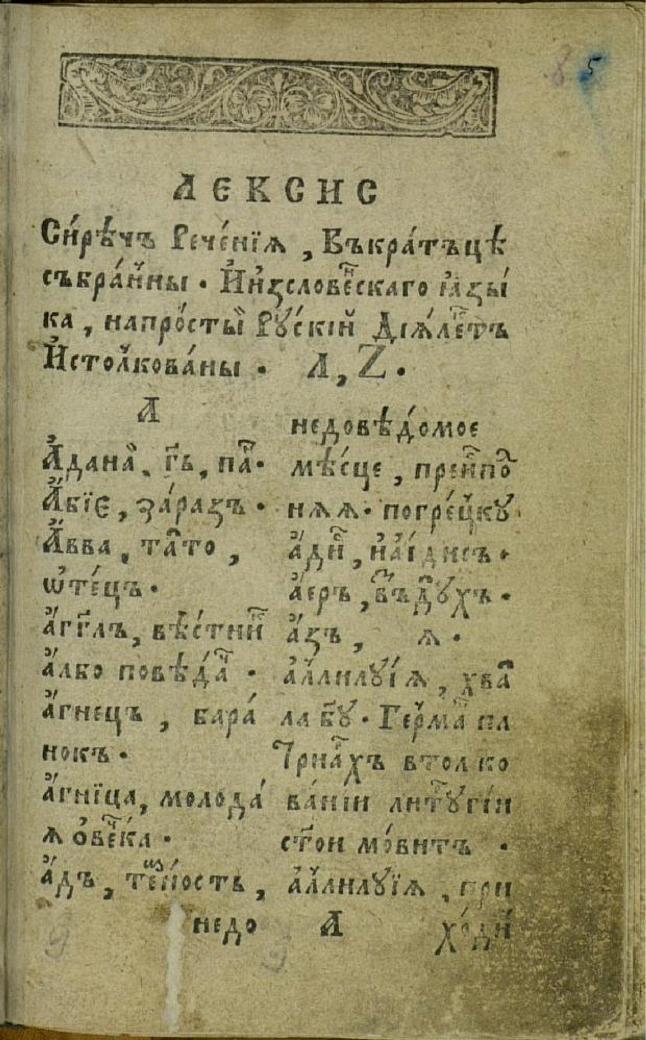 5
ЛЕКСИС
Си́рѣчъ Рече́нїѧ, Въкра́тъцѣ
събра́н̾ны. И҆из̾слове́нскаго ꙗ҆зы́
ка, напро́сты Рꙋ́скїй Дїѧ́ле́ктъ
И҆столкова́ны. Л, Z.
А
А҆дана̀, гь҃, па́.
А҆́бїе, за́разъ.
А҆́вва, та́то,
ѡ҆те́цъ.
а҆́гг҃лъ, вѣ́стни
а҆́лбо повѣ́да
а҆́гнецъ, бара́
нокъ.
а҆́гнїца, молода́
ѧ ѻ҆ве́чка.
а҆́дъ, те́мность,
недо
недовѣ́домое
мѣ́сце, преиспо
нѧѧ. погре́цкꙋ
а҆́ди, и҆аі́дисъ.
а҆́еръ, въ́здꙋхъ.
а҆́зъ, ѧ.
а҆ллилꙋ́їѧ, хва
ла бг҃ꙋ. Ге́рма па
трїа́рхъ втолко
ва́нїи литꙋргі́и
ст҃ои мо́витъ.
а҆ллилꙋїѧ, при
А хо́ди